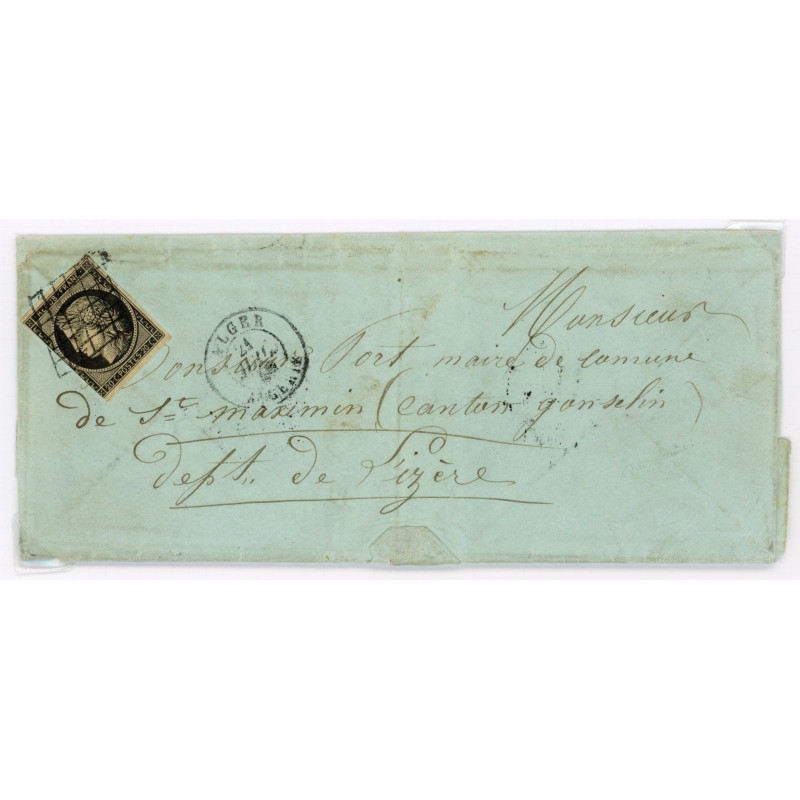 REPUB. FRANC.
20.C POSTES 20.C
ALGER
ALGERIE
Monsieur
Port maire de Comune
de St. maximin (canton gonselin)
dept. de L'izère